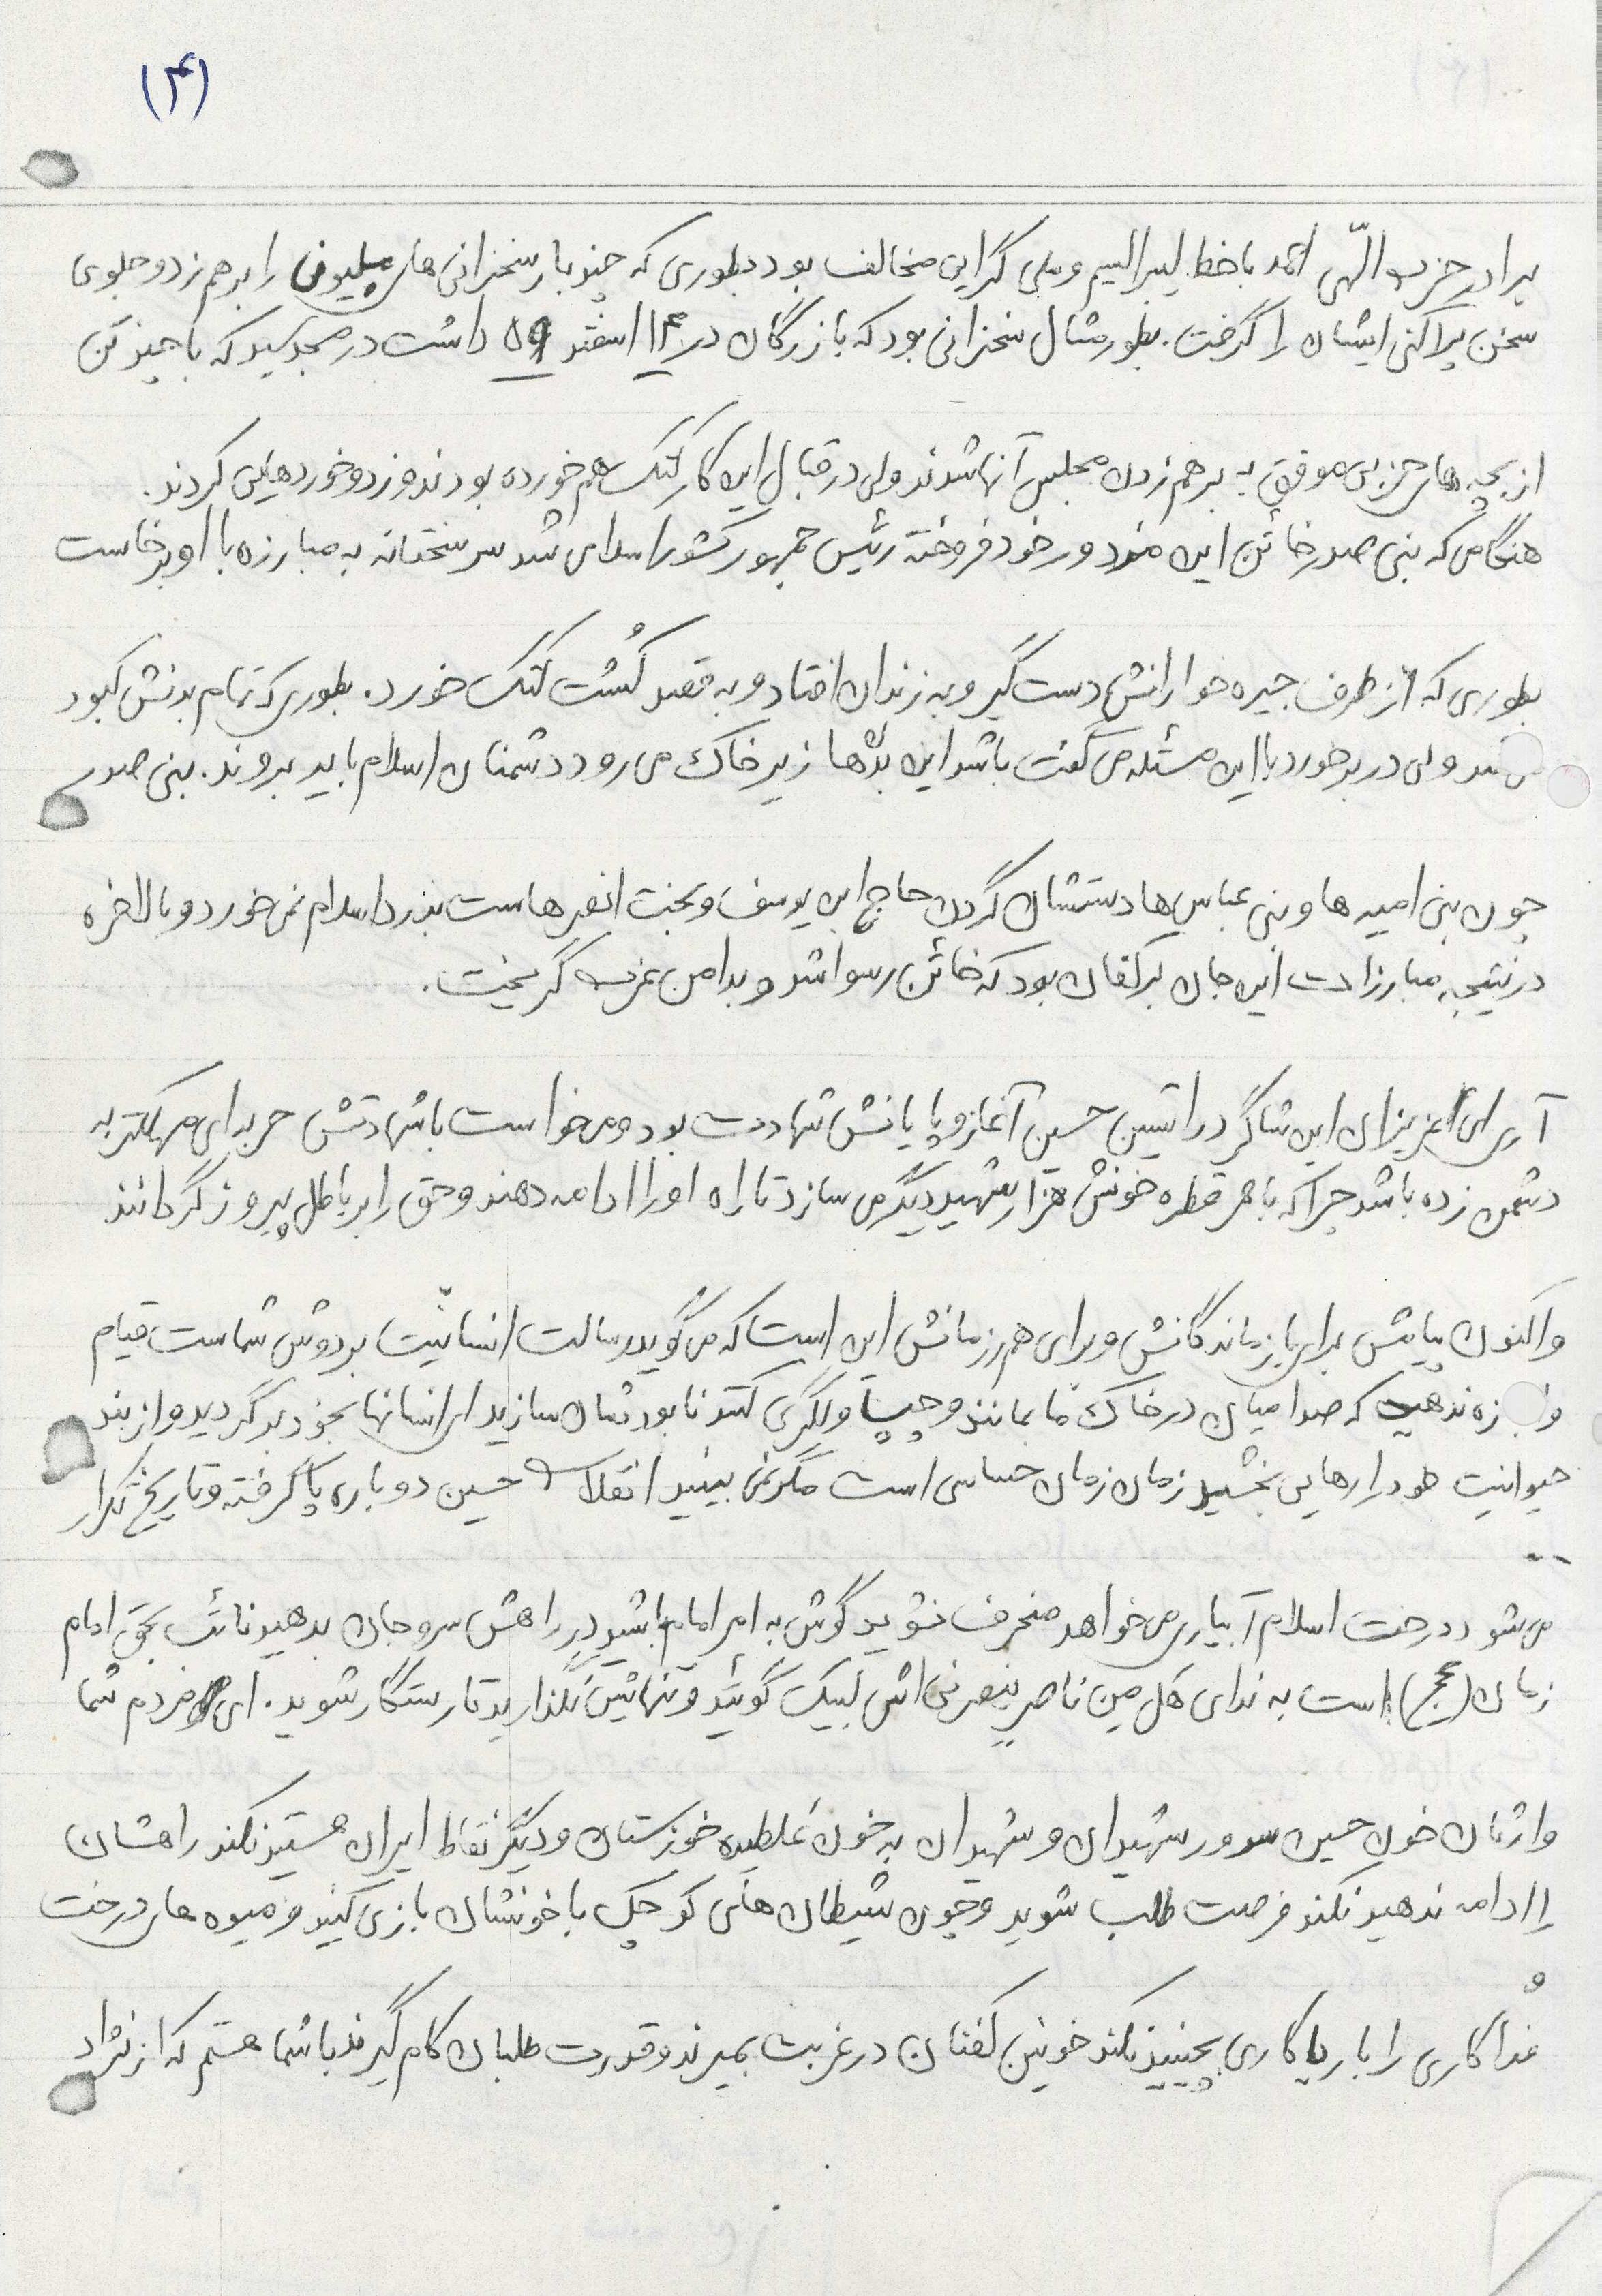 (۴)
برادر حزب الّهی احمد با خط لیبرالیسم و ملی گراین مخالف بود دبطوری که چند بار سخنرانی های ملیون را برهم زد و جلوی
سخن پراکنی ایشان را گرفت. بطور مثال سخنرانی بود که بازرگان در ۱۴ اسفند ۵۹ داشت در مجد سید که با چند تن
از بچه های حزبی موفق به برهم زدن مجلس آنها شدند ولی در قبال این کار کتک هم خورده بودند و زد و خوردهایی کردند.
هنگامی که بنی صدر خائن این مزدور خود فروخته رئیس جمهور کشور اسلامی شد سرسختانه به مبارزه با او برخاست
بطوری که از طرف جیره خوارانش دست گیر و به زندان افتاد و به قصد کُشت کتک خورد. بطوری که تمام بدنش کبود
شد ولی در برخورد با این مسئله می گفت باشد این بدنها زیر خاک می رود دشمنان اسلام باید بروند. بنی صدر
چون بنی امیه ها و بنی عباس ها دستشان گردن حاج ابن یوسف و بخت النصرهاست بدرد اسلام نمی خورد و بالاخره
در نتیجه مبارزات این جان برکفان بود که خائن رسوا شد و بدامن غرب گریخت.
آری ای عزیزان این شاگرد راستین حسین آغاز و پایانش شهادت بود و می خواست با شهادتش حربه ای مهلکتر به
دشمن زده باشد چرا که با هر قطره خونش هزار شهید دیگر می سازد تا راه او را ادامه دهند و حق را بر باطل پیروز گردانند
واکنون پیامش برای بازماندگانش و برای هم رزمانش این است که می گوید رسالت انسانیّت بر دوش شماست قیام
زه ندهید که صدامیان در خاک ما بمانند و چپاولگری کنند نابودشان سازید ای انسانها بخود برگردید و از بند
حیوانیت خود را رهایی بخشید زمان زمان حساسی است مگر نمی بینید انقلاب حسین دوباره پا گرفته و تاریخ تکرار
می شود درخت اسلام آبیاری می خواهد منحرف نشوید گوش به امر امام باشید در راهش سرو جان بدهید نائب بحق امام
زمان (عج) است به ندای هل من ناصر ینصرنی اش لبیک گوئید و تنهایش نگذارید تا رستگار شوید. ای مردم شما
وارثان خون حسین سرور شهیدان و شهیدان به خون غلطیده خوزستان و دیگر نقاط ایران هستید نکند راهشان
را ادامه ندهید نکند فرصت طلب شوید و چون شیطان های کوچک با خونشان بازی کنید و میوه های درخت
فداکاری را با ریاکاری بچینید نکند خونین کفنان در غربت بمیرند و قدرت طلبان کام گیرند با شما هستم که از نژاد